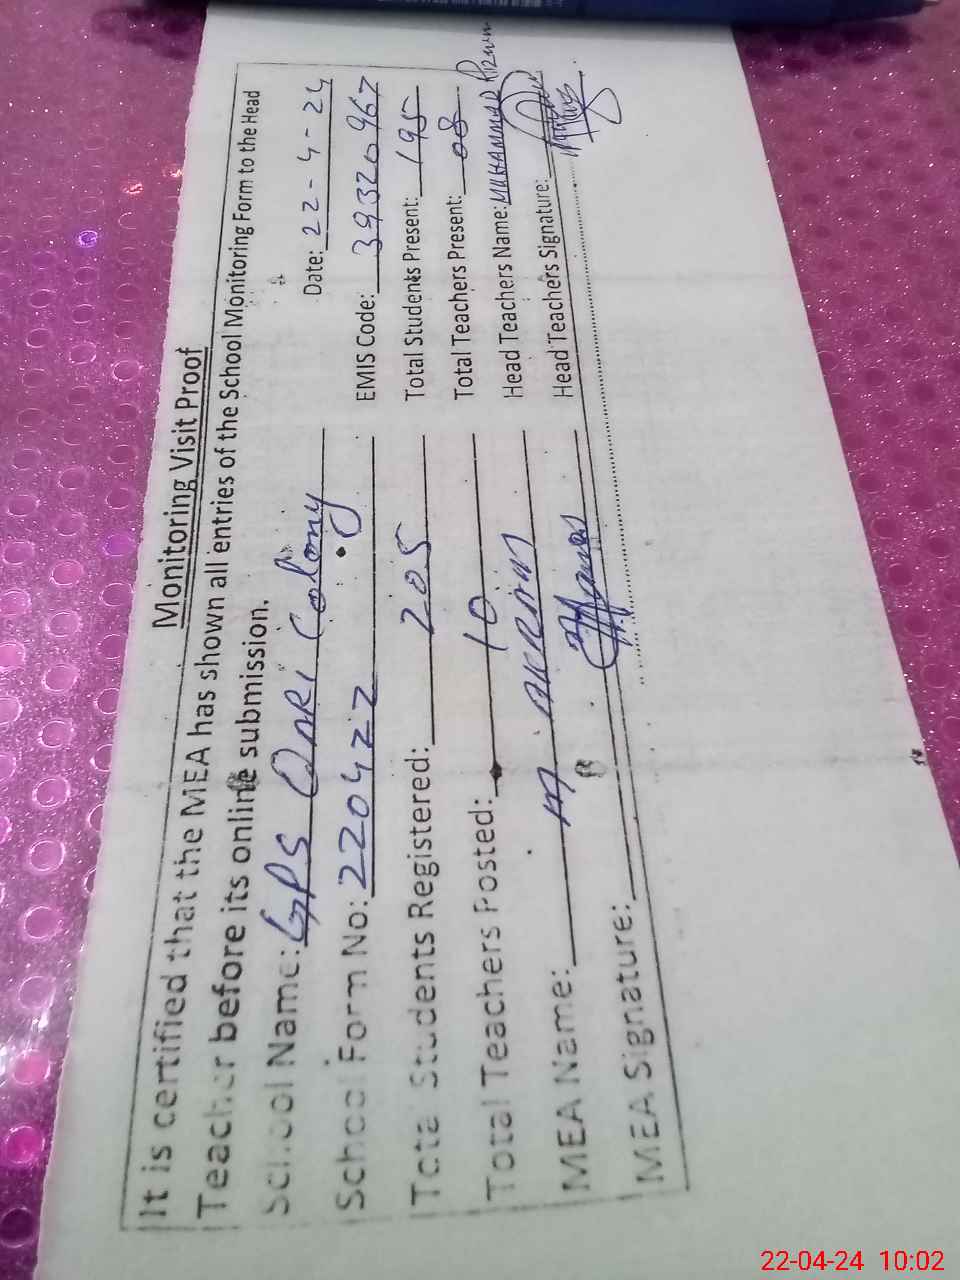 Monitoring Visit Proof
It is certified that the MEA has shown all entries of the School Monitoring Form to the Head
Teacher before its online submission.
Date: 22-4-24
School Name: GPS Qari Colony
EMIS Code: 39320967
School Form No: 220422
Total Students Present: 195
Total Students Registered: 205
Total Teachers Present: 08
Total Teachers Posted: 10
Head Teachers Name: MUHAMMAD Rizwan
MEA Name: M AKRAM
Head Teachers Signature:
MEA Signature:
22-04-24 10:02